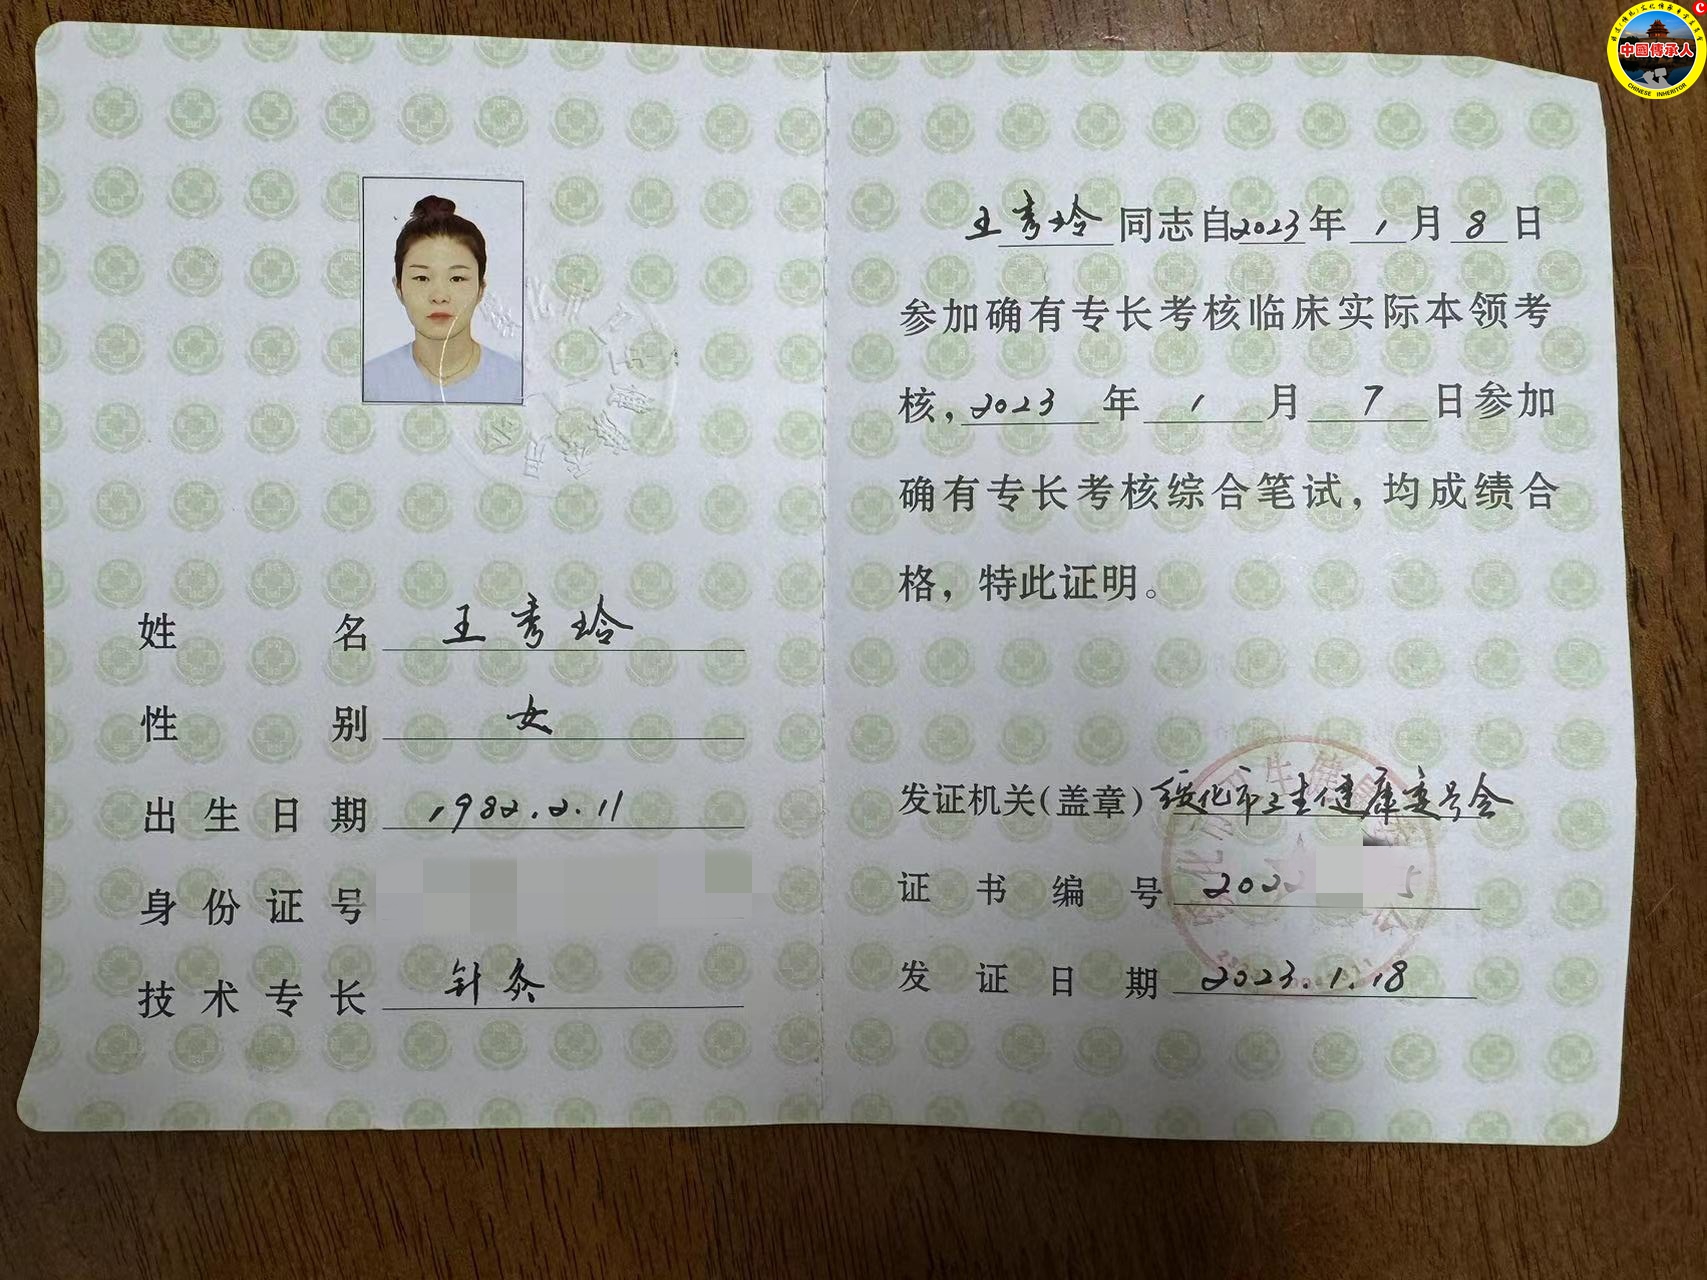 姓名 王秀玲
性别 女
出生日期 1982.2.11
身份证号
技术专长 针灸
王秀玲同志自2023年1月8日
参加确有专长考核临床实际本领考
核,2023年1月7日参加
确有专长考核综合笔试,均成绩合
格,特此证明。
发证机关(盖章)绥化市卫生健康委员会
证书编号 2022 5
发证日期 2023.1.18
中國傳承人
CHINESE INHERITOR
C